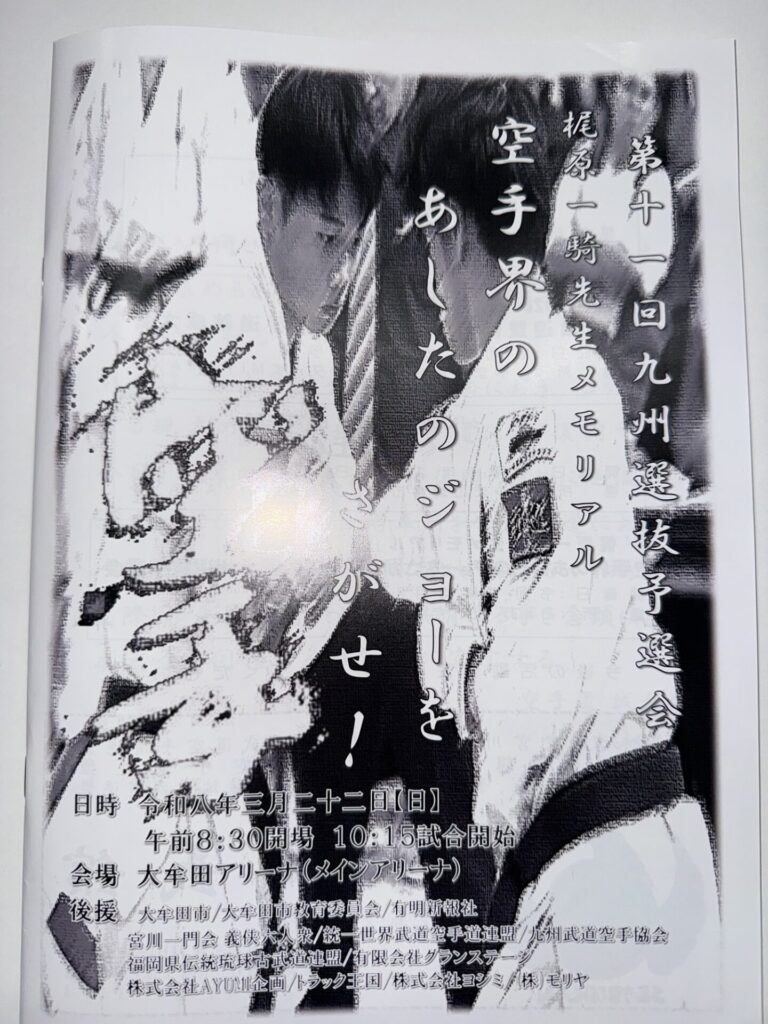 第十一回九州選抜予選会
梶原一騎先生メモリアル
空手界の
あしたのジョーを
さがせ！
日時 令和八年三月二十二日【日】
午前8:30開場 10:15試合開始
会場 大牟田アリーナ(メインアリーナ)
後援 大牟田市/大牟田市教育委員会/有明新報社
宮川一門会 義侠六人衆/統一世界武道空手道連盟/九州武道空手協会
福岡県伝統琉球古武道連盟/有限会社グランステージ
株式会社AYUMI企画/トラック王国/株式会社ヨシミ/(株)モリヤ